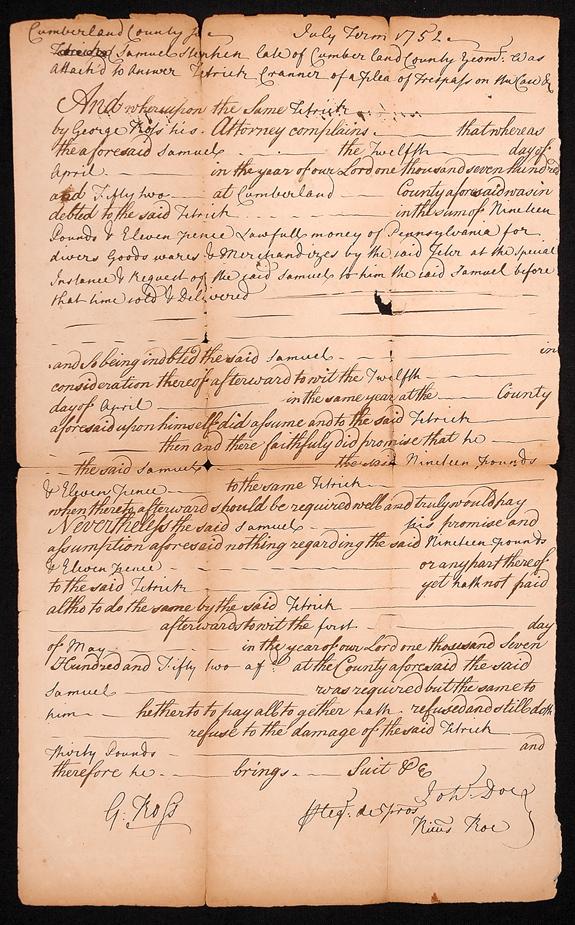 Cumberland County ss July Term 1752
Samuel Stephen late of Cumberland County Yeom.ⁿ was
attach'd to answer Petrick Cranner of a plea of Trespass on the Case &
And whereupon the same Petrick
by George Ross his Attorney complains that whereas
the aforesaid Samuel the Twelfth day of
April in the year of our Lord one thousand seven hundred
and Fifty two at Cumberland County aforesaid was in
debted to the said Petrick in the sum of Nineteen
Pounds & Eleven pence Lawfull money of Pennsylvania for
divers Goods wares & Merchandizes by the said Petr at the special
Instance & Request of the said Samuel to him the said Samuel before
that time sold & Delivered
and so being indebted the said Samuel in
consideration thereof afterward to wit the Twelfth
day of April in the same year at the County
aforesaid upon himself did assume and to the said Petrick
then and there faithfully did promise that he
the said Samuel the said Nineteen Pounds
& Eleven pence to the same Petrick
when thereto afterward should be required well and truly would pay
Nevertheless the said Samuel his promise and
assumption aforesaid nothing regarding the said Nineteen pounds
& Eleven pence or any part thereof
to the said Petrick yet hath not paid
altho to do the same by the said Petrick
afterwards to wit the first day
of May in the year of our Lord one thousand Seven
Hundred and Fifty two afd at the County aforesaid the said
Samuel was required but the same to
him hetherto to pay all together hath refused and still doth
refuse to the damage of the said Petrick
Thirty Pounds and
therefore he brings Suit &c
G: Ross Pleg. de Pros John Doe
Richd Roe